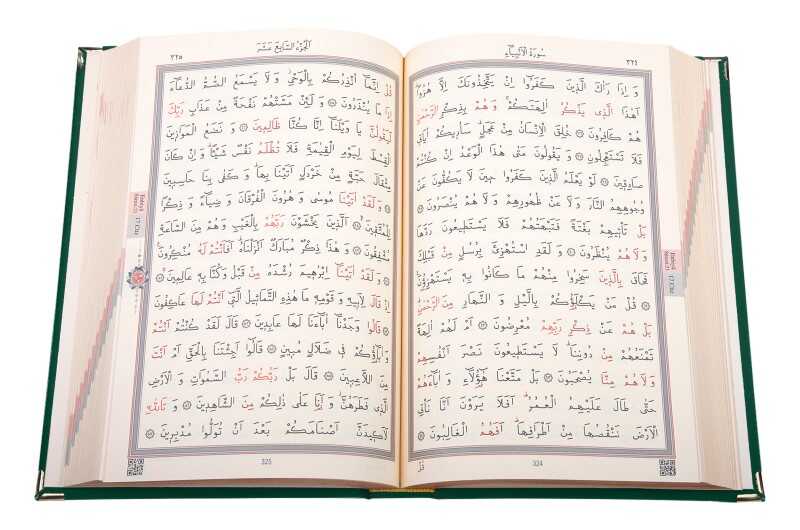 ٣٢٤ سُورَةُ الْاَنْبِيَٓاءِ
وَ اِذَا رَاٰكَ الَّذِينَ كَفَرُٓوا اِنْ يَتَّخِذُونَكَ اِلَّا هُزُوًا
اَهٰذَا الَّذِى يَذْكُرُ اٰلِهَتَكُمْ وَ هُمْ بِذِكْرِ الرَّحْمٰنِ
هُمْ كَافِرُونَ خُلِقَ الْاِنْسَانُ مِنْ عَجَلٍ سَاُرِيكُمْ اٰيَاتِى
فَلَا تَسْتَعْجِلُونِ وَ يَقُولُونَ مَتٰى هٰذَا الْوَعْدُ اِنْ كُنْتُمْ
صَادِقِينَ لَوْ يَعْلَمُ الَّذِينَ كَفَرُوا حِينَ لَا يَكُفُّونَ عَنْ
وُجُوهِهِمُ النَّارَ وَ لَا عَنْ ظُهُورِهِمْ وَ لَا هُمْ يُنْصَرُونَ
بَلْ تَأْتِيهِمْ بَغْتَةً فَتَبْهَتُهُمْ فَلَا يَسْتَطِيعُونَ رَدَّهَا
وَ لَا هُمْ يُنْظَرُونَ وَ لَقَدِ اسْتُهْزِئَ بِرُسُلٍ مِنْ قَبْلِكَ
فَحَاقَ بِالَّذِينَ سَخِرُوا مِنْهُمْ مَا كَانُوا بِهِ يَسْتَهْزِؤُنَ
قُلْ مَنْ يَكْلَؤُكُمْ بِالَّيْلِ وَ النَّهَارِ مِنَ الرَّحْمٰنِ
بَلْ هُمْ عَنْ ذِكْرِ رَبِّهِمْ مُعْرِضُونَ اَمْ لَهُمْ اٰلِهَةٌ
تَمْنَعُهُمْ مِنْ دُونِنَا لَا يَسْتَطِيعُونَ نَصْرَ اَنْفُسِهِمْ
وَ لَا هُمْ مِنَّا يُصْحَبُونَ بَلْ مَتَّعْنَا هٰٓؤُلَٓاءِ وَ اٰبَٓاءَهُمْ
حَتّٰى طَالَ عَلَيْهِمُ الْعُمُرُ اَفَلَا يَرَوْنَ اَنَّا نَأْتِى
الْاَرْضَ نَنْقُصُهَا مِنْ اَطْرَافِهَا اَفَهُمُ الْغَالِبُونَ
324
قُلْ
اَلْجُزْءُ السَّابِعَ عَشَرَ ٣٢٥
قُلْ اِنَّمَٓا اُنْذِرُكُمْ بِالْوَحْىِ وَ لَا يَسْمَعُ الصُّمُّ الدُّعَٓاءَ
اِذَا مَا يُنْذَرُونَ وَ لَئِنْ مَسَّتْهُمْ نَفْحَةٌ مِنْ عَذَابِ رَبِّكَ
لَيَقُولُنَّ يَا وَيْلَنَٓا اِنَّا كُنَّا ظَالِمِينَ وَ نَضَعُ الْمَوَازِينَ
الْقِسْطَ لِيَوْمِ الْقِيٰمَةِ فَلَا تُظْلَمُ نَفْسٌ شَيْئًا وَ اِنْ كَانَ
مِثْقَالَ حَبَّةٍ مِنْ خَرْدَلٍ اَتَيْنَا بِهَا وَ كَفٰى بِنَا حَاسِبِينَ
وَ لَقَدْ اٰتَيْنَا مُوسٰى وَ هٰرُونَ الْفُرْقَانَ وَ ضِيَٓاءً وَ ذِكْرًا
لِلْمُتَّقِينَ اَلَّذِينَ يَخْشَوْنَ رَبَّهُمْ بِالْغَيْبِ وَ هُمْ مِنَ السَّاعَةِ
مُشْفِقُونَ وَ هٰذَا ذِكْرٌ مُبَارَكٌ اَنْزَلْنَاهُ اَفَاَنْتُمْ لَهُ مُنْكِرُونَ
وَ لَقَدْ اٰتَيْنَٓا اِبْرٰهِيمَ رُشْدَهُ مِنْ قَبْلُ وَ كُنَّا بِهِ عَالِمِينَ
اِذْ قَالَ لِاَبِيهِ وَ قَوْمِهِ مَا هٰذِهِ التَّمَاثِيلُ الَّتِى اَنْتُمْ لَهَا عَاكِفُونَ
قَالُوا وَجَدْنَٓا اٰبَٓاءَنَا لَهَا عَابِدِينَ قَالَ لَقَدْ كُنْتُمْ اَنْتُمْ
وَ اٰبَٓاؤُكُمْ فِى ضَلَالٍ مُبِينٍ قَالُٓوا اَجِئْتَنَا بِالْحَقِّ اَمْ اَنْتَ
مِنَ اللَّاعِبِينَ قَالَ بَلْ رَبُّكُمْ رَبُّ السَّمٰوَاتِ وَ الْاَرْضِ
الَّذِى فَطَرَهُنَّ وَ اَنَا عَلٰى ذٰلِكُمْ مِنَ الشَّاهِدِينَ وَ تَاللّٰهِ
لَاَكِيدَنَّ اَصْنَامَكُمْ بَعْدَ اَنْ تُوَلُّوا مُدْبِرِينَ
325